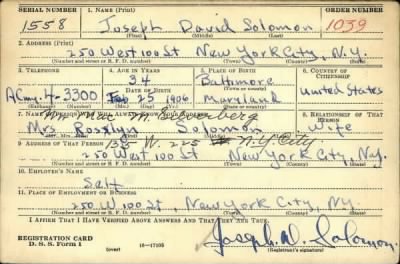 SERIAL NUMBER 1. NAME (Print) ORDER NUMBER
1558 Joseph David Solomon 1039
(First) (Middle) (Last)
2. ADDRESS (Print)
250 West 100 St New York City, N.Y.
(Number and street or R. F. D. number) (Town) (County) (State)
3. TELEPHONE 4. AGE IN YEARS 5. PLACE OF BIRTH 6. COUNTRY OF CITIZENSHIP
34 Baltimore
ACmy. 4-3300 DATE OF BIRTH United States
Feb 25 1906 Maryland
(Exchange) (Number) (Mo.) (Day) (Yr.) (State or country)
7. NAME OF PERSON WHO WILL ALWAYS KNOW YOUR ADDRESS 8. RELATIONSHIP OF THAT PERSON
Mrs. Rosslyn Solomon Wife
(Mr., Mrs., Miss) (First) (Middle) (Last)
9. ADDRESS OF THAT PERSON 135 W. 225 St N.Y. City
250 West 100 St New York City, N.Y.
(Number and street or R. F. D. number) (Town) (County) (State)
10. EMPLOYER'S NAME
Self
11. PLACE OF EMPLOYMENT OR BUSINESS
250 W 100 St, New York City, N.Y.
(Number and street or R. F. D. number) (Town) (County) (State)
I AFFIRM THAT I HAVE VERIFIED ABOVE ANSWERS AND THAT THEY ARE TRUE.
REGISTRATION CARD
D. S. S. Form 1 (over) 16—17105 Joseph D. Solomon